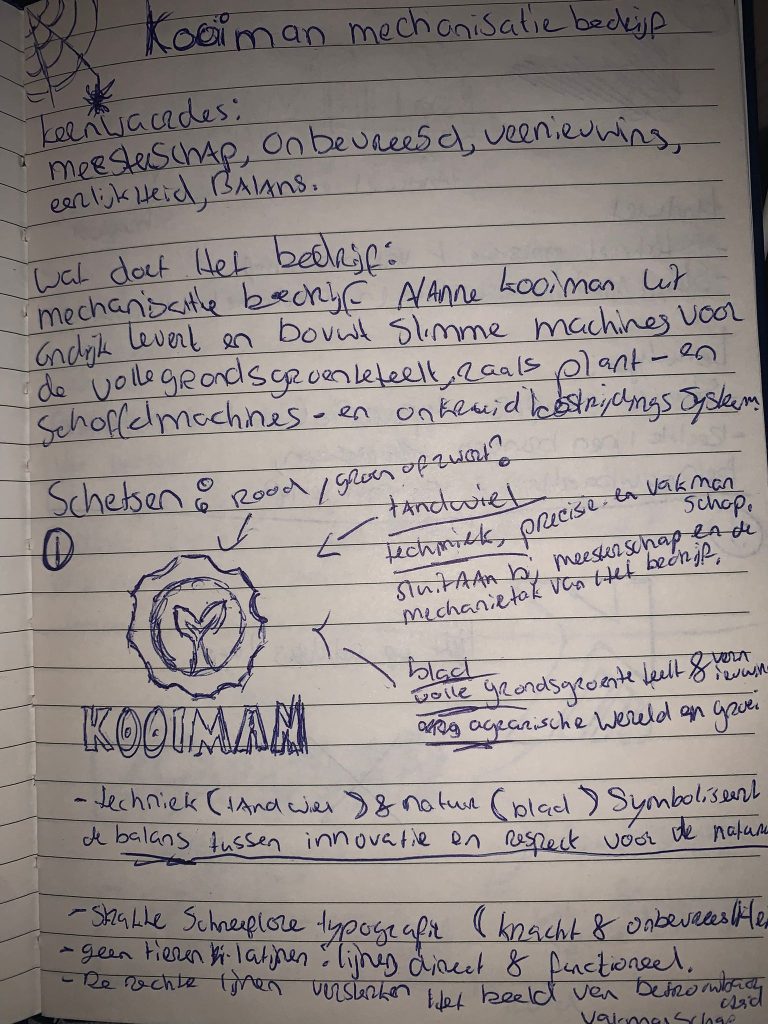 Kooiman mechanisatie bedrijf
kernwaardes:
meesterschap, onbevreesd, vernieuwing,
eerlijkheid, BAlans.
Wat doet Het bedrijf:
mechanisatie bedrijf NAnne kooiman uit
Andijk levert en bouwt slimme machines voor
de vollegrondsgroenteteelt, zoals plant- en
schoffelmachines - en onkruidbestrijdings system
Schetsen: rood / groen of zwart?
①
tandwiel
techniek, precisie en vakman
schap.
sluit AAn bij meesterschap en de
mechanietak van Het bedrijf.
blad
volle grondsgroente teelt & vern
ieuwin
agrarische wereld en groei
KOOIMAN
- techniek (tAndwiel) & natuur (blad) Symboliseert
de balans tussen innovatie en respect voor de natuur
- Strakke Schreefloze typografie (kracht & onbevreesdHei
- geen : lijnen direct & functioneel.
- De rechte lijnen versterken Het beeld van betrouwbaar
heid
vakmanschap